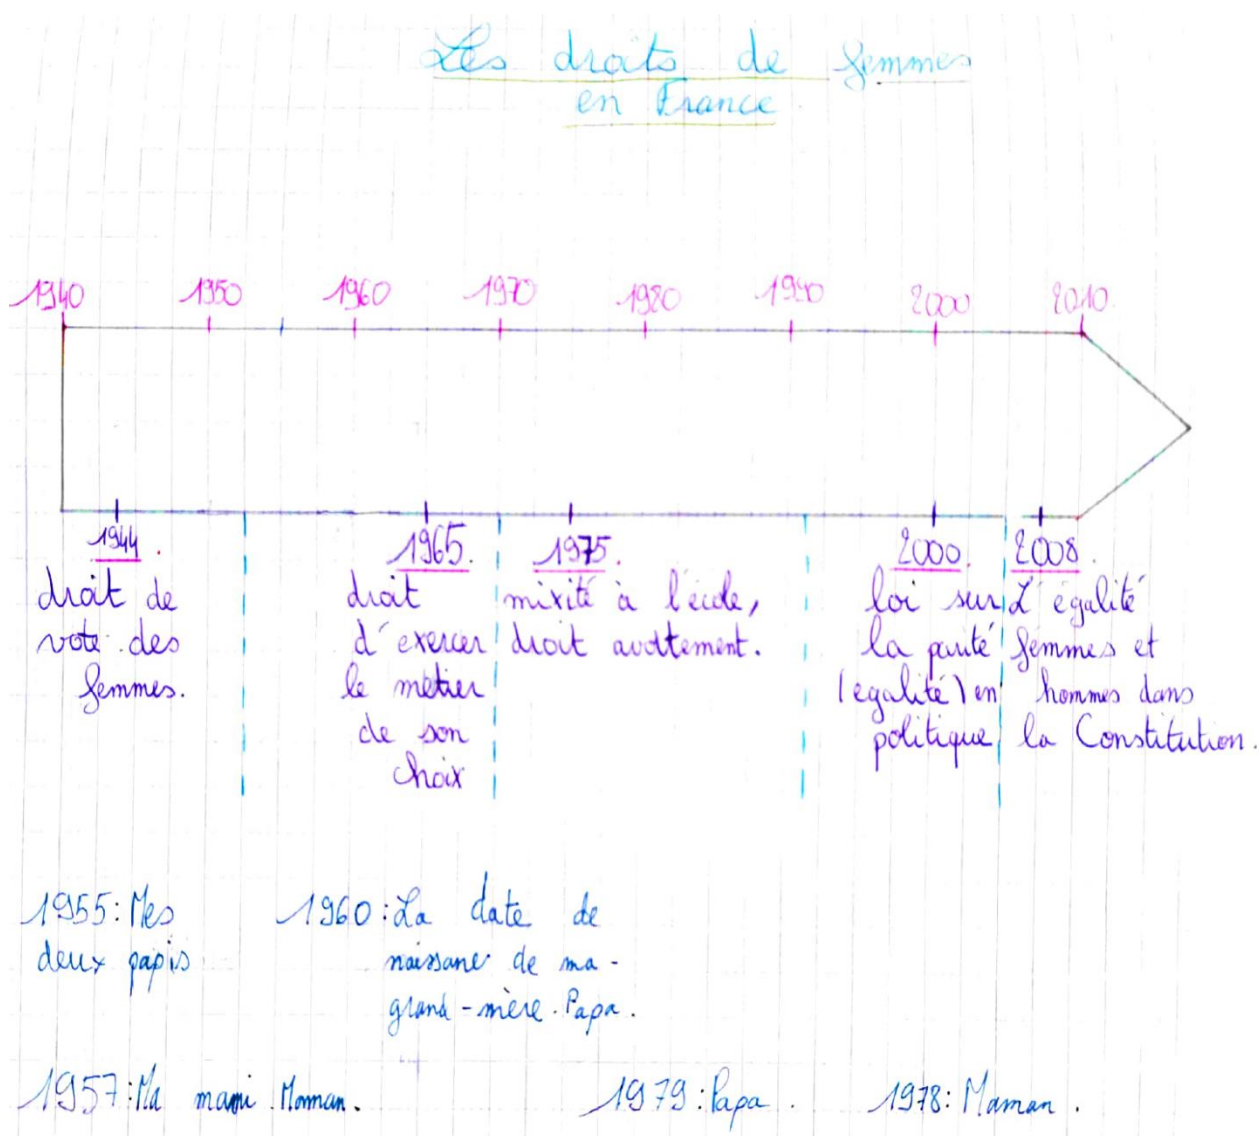 Les droits de femmes
en France.
1940 1950 1960 1970 1980 1990 2000 2010.
1944.
droit de
vote des
femmes.
1965.
droit
d'exercer
le métier
de son
choix
1975.
mixité à l'école,
droit avortement.
2000.
loi sur
la parité
(egalité) en
politique
2008.
L'égalité
femmes et
hommes dans
la Constitution.
1955: Mes
deux papis
1960: La date de
naissane de ma-
grand-mère. Papa.
1957: Ma mami Maman.
1979: Papa.
1978: Maman.